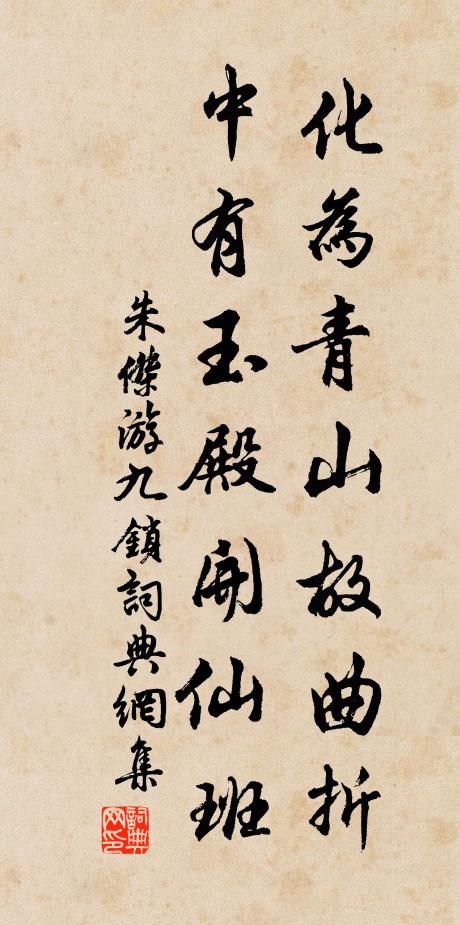 化為青山故曲折
中有玉殿開仙班
朱傑游九鎖詞典網集
詞典網印